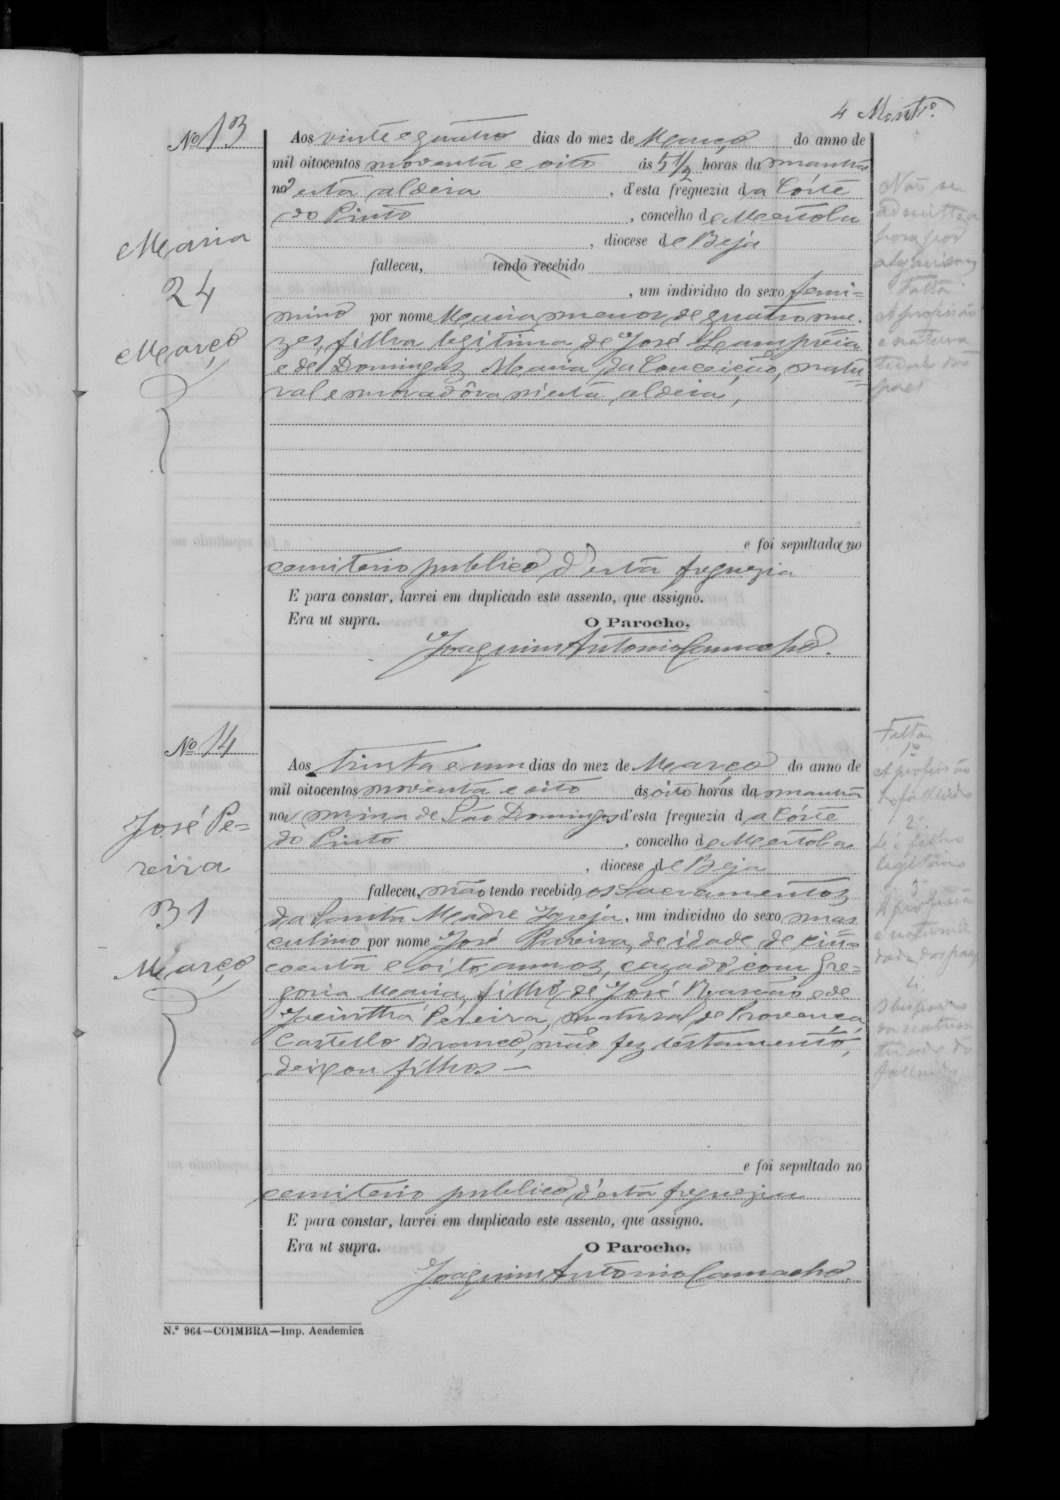 4
Nº 13
Aos vinte e quatro dias do mez de Março do anno de
mil oitocentos noventa e oito ás 5 1/2 horas da manhã
n'esta aldeia, d'esta freguezia da Córte
do Pinto, concelho de Mertola
, diocese de Beja
falleceu, tendo recebido
, um individuo do sexo femi-
nino por nome Maria, menor, de quatro me-
zes, filha legitima de José
e de Domingas Maria da Conceição, natu-
ral e moradôra n'esta aldeia,
e foi sepultada no
cemiterio publico d'esta freguezia
E para constar, lavrei em duplicado este assento, que assigno.
Era ut supra.
O Parocho,
Joaquim Antonio Camacho.
Maria
24
Março
Nº 14
Aos trinta e um dias do mez de Março do anno de
mil oitocentos noventa e oito ás oito horas da manhã
na mina de São Domingos d'esta freguezia da Córte
do Pinto, concelho de Mertola
, diocese de Beja
falleceu, não tendo recebido os Sacramentos
da Santa Madre Igreja, um individuo do sexo mas
culino por nome José Pereira, de idade de cin-
coenta e oito annos, cazado com Gre-
goria Maria, filho de José e de
Jacintha Pereira, natural de Provença
Castello Branco, não fez testamento,
deixou filhos —
e foi sepultado no
cemiterio publico d'esta freguezia
E para constar, lavrei em duplicado este assento, que assigno.
Era ut supra.
O Parocho,
Joaquim Antonio Camacho.
José Pe-
reira
31
Março
Falta
1º
A profissão
2º
3º
N.º 964—COIMBRA—Imp. Academica